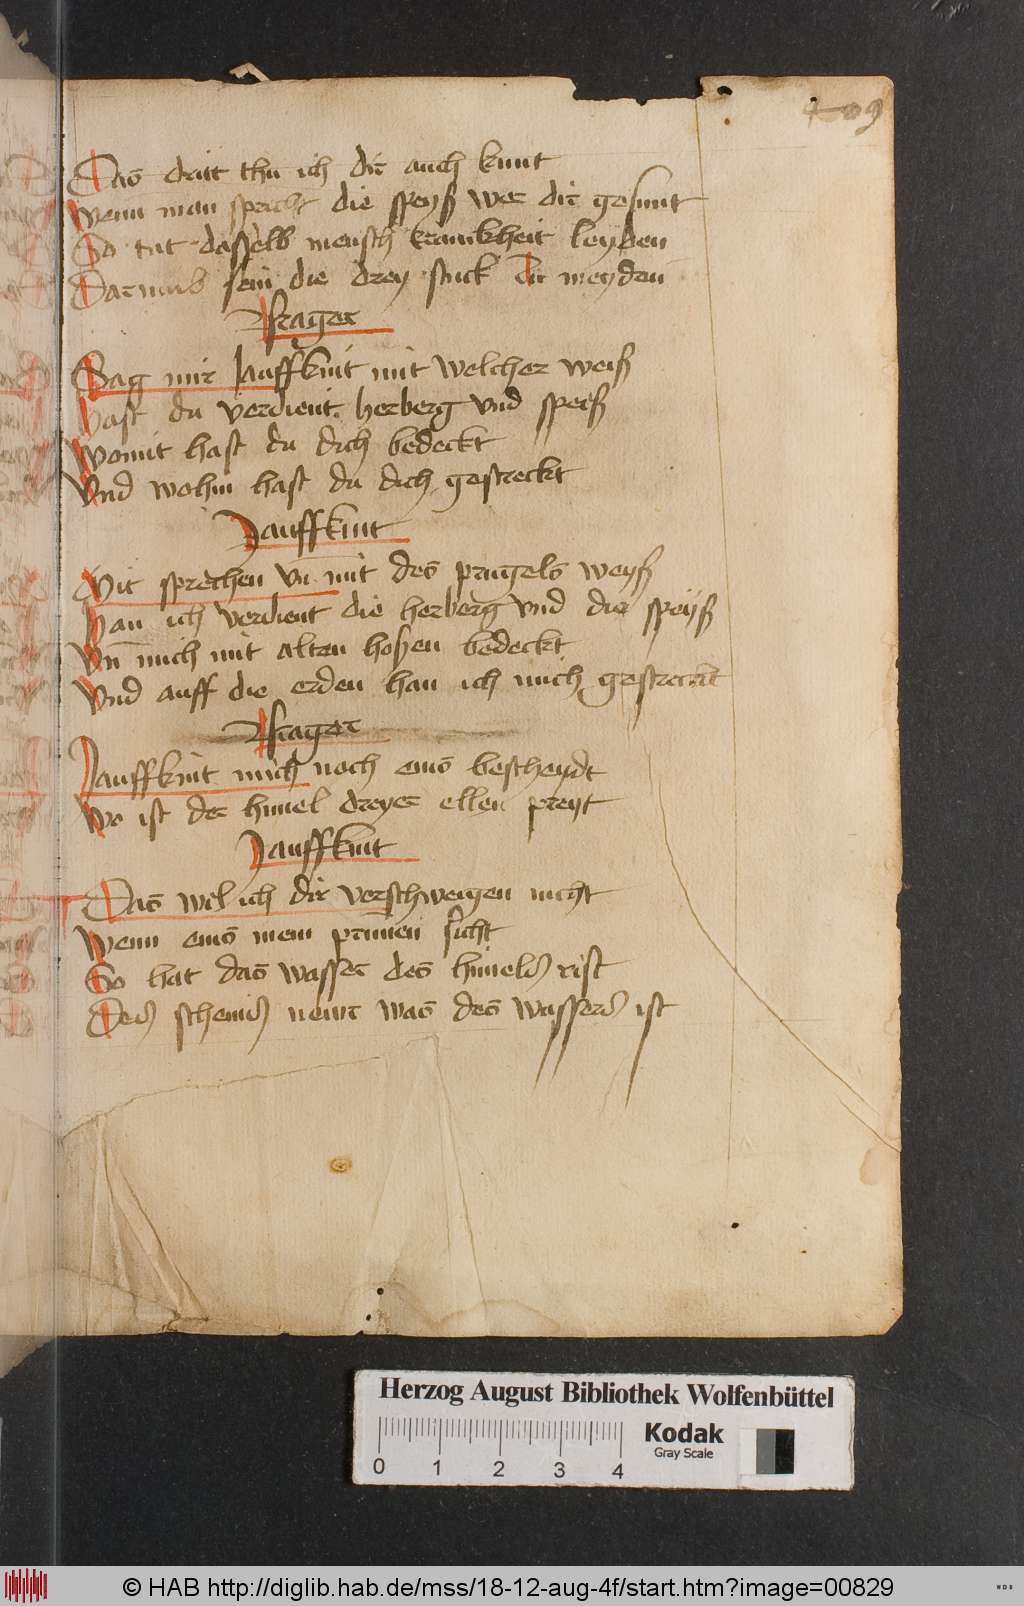 409
Das dritt thu ich dir auch kunt
Wenn man spricht die speyß wer dir gesunt
So tut dasselb mensch kranckheit leyden
Darumb sein die drey stuck dir meyden
Frager
Sag mir lauffkint mit welcher weiß
Hast du verdient herberg vnd speiß
Womit hast du dich bedeckt
Vnd wohin hast du dich gestreckt
Lauffkint
Mit sprechen vn̄ mit des prugels weyß
Han ich verdient die herberg vnd die speyß
Vn̄ mich mit alten hosen bedeckt
Vnd auff die erden han ich mich gestreckt
Frager
Lauffkint mich noch eins bescheydt
Wo ist der himel dreyer ellen preyt
Lauffkint
Das wil ich dir verschweigen nicht
Wenn eins in ein prunnen sicht
So hat das wasser des himels rist
Des scheins newr was des wassers ist
Herzog August Bibliothek Wolfenbüttel
Kodak
Gray Scale
0 1 2 3 4
© HAB http://diglib.hab.de/mss/18-12-aug-4f/start.htm?image=00829
WDB